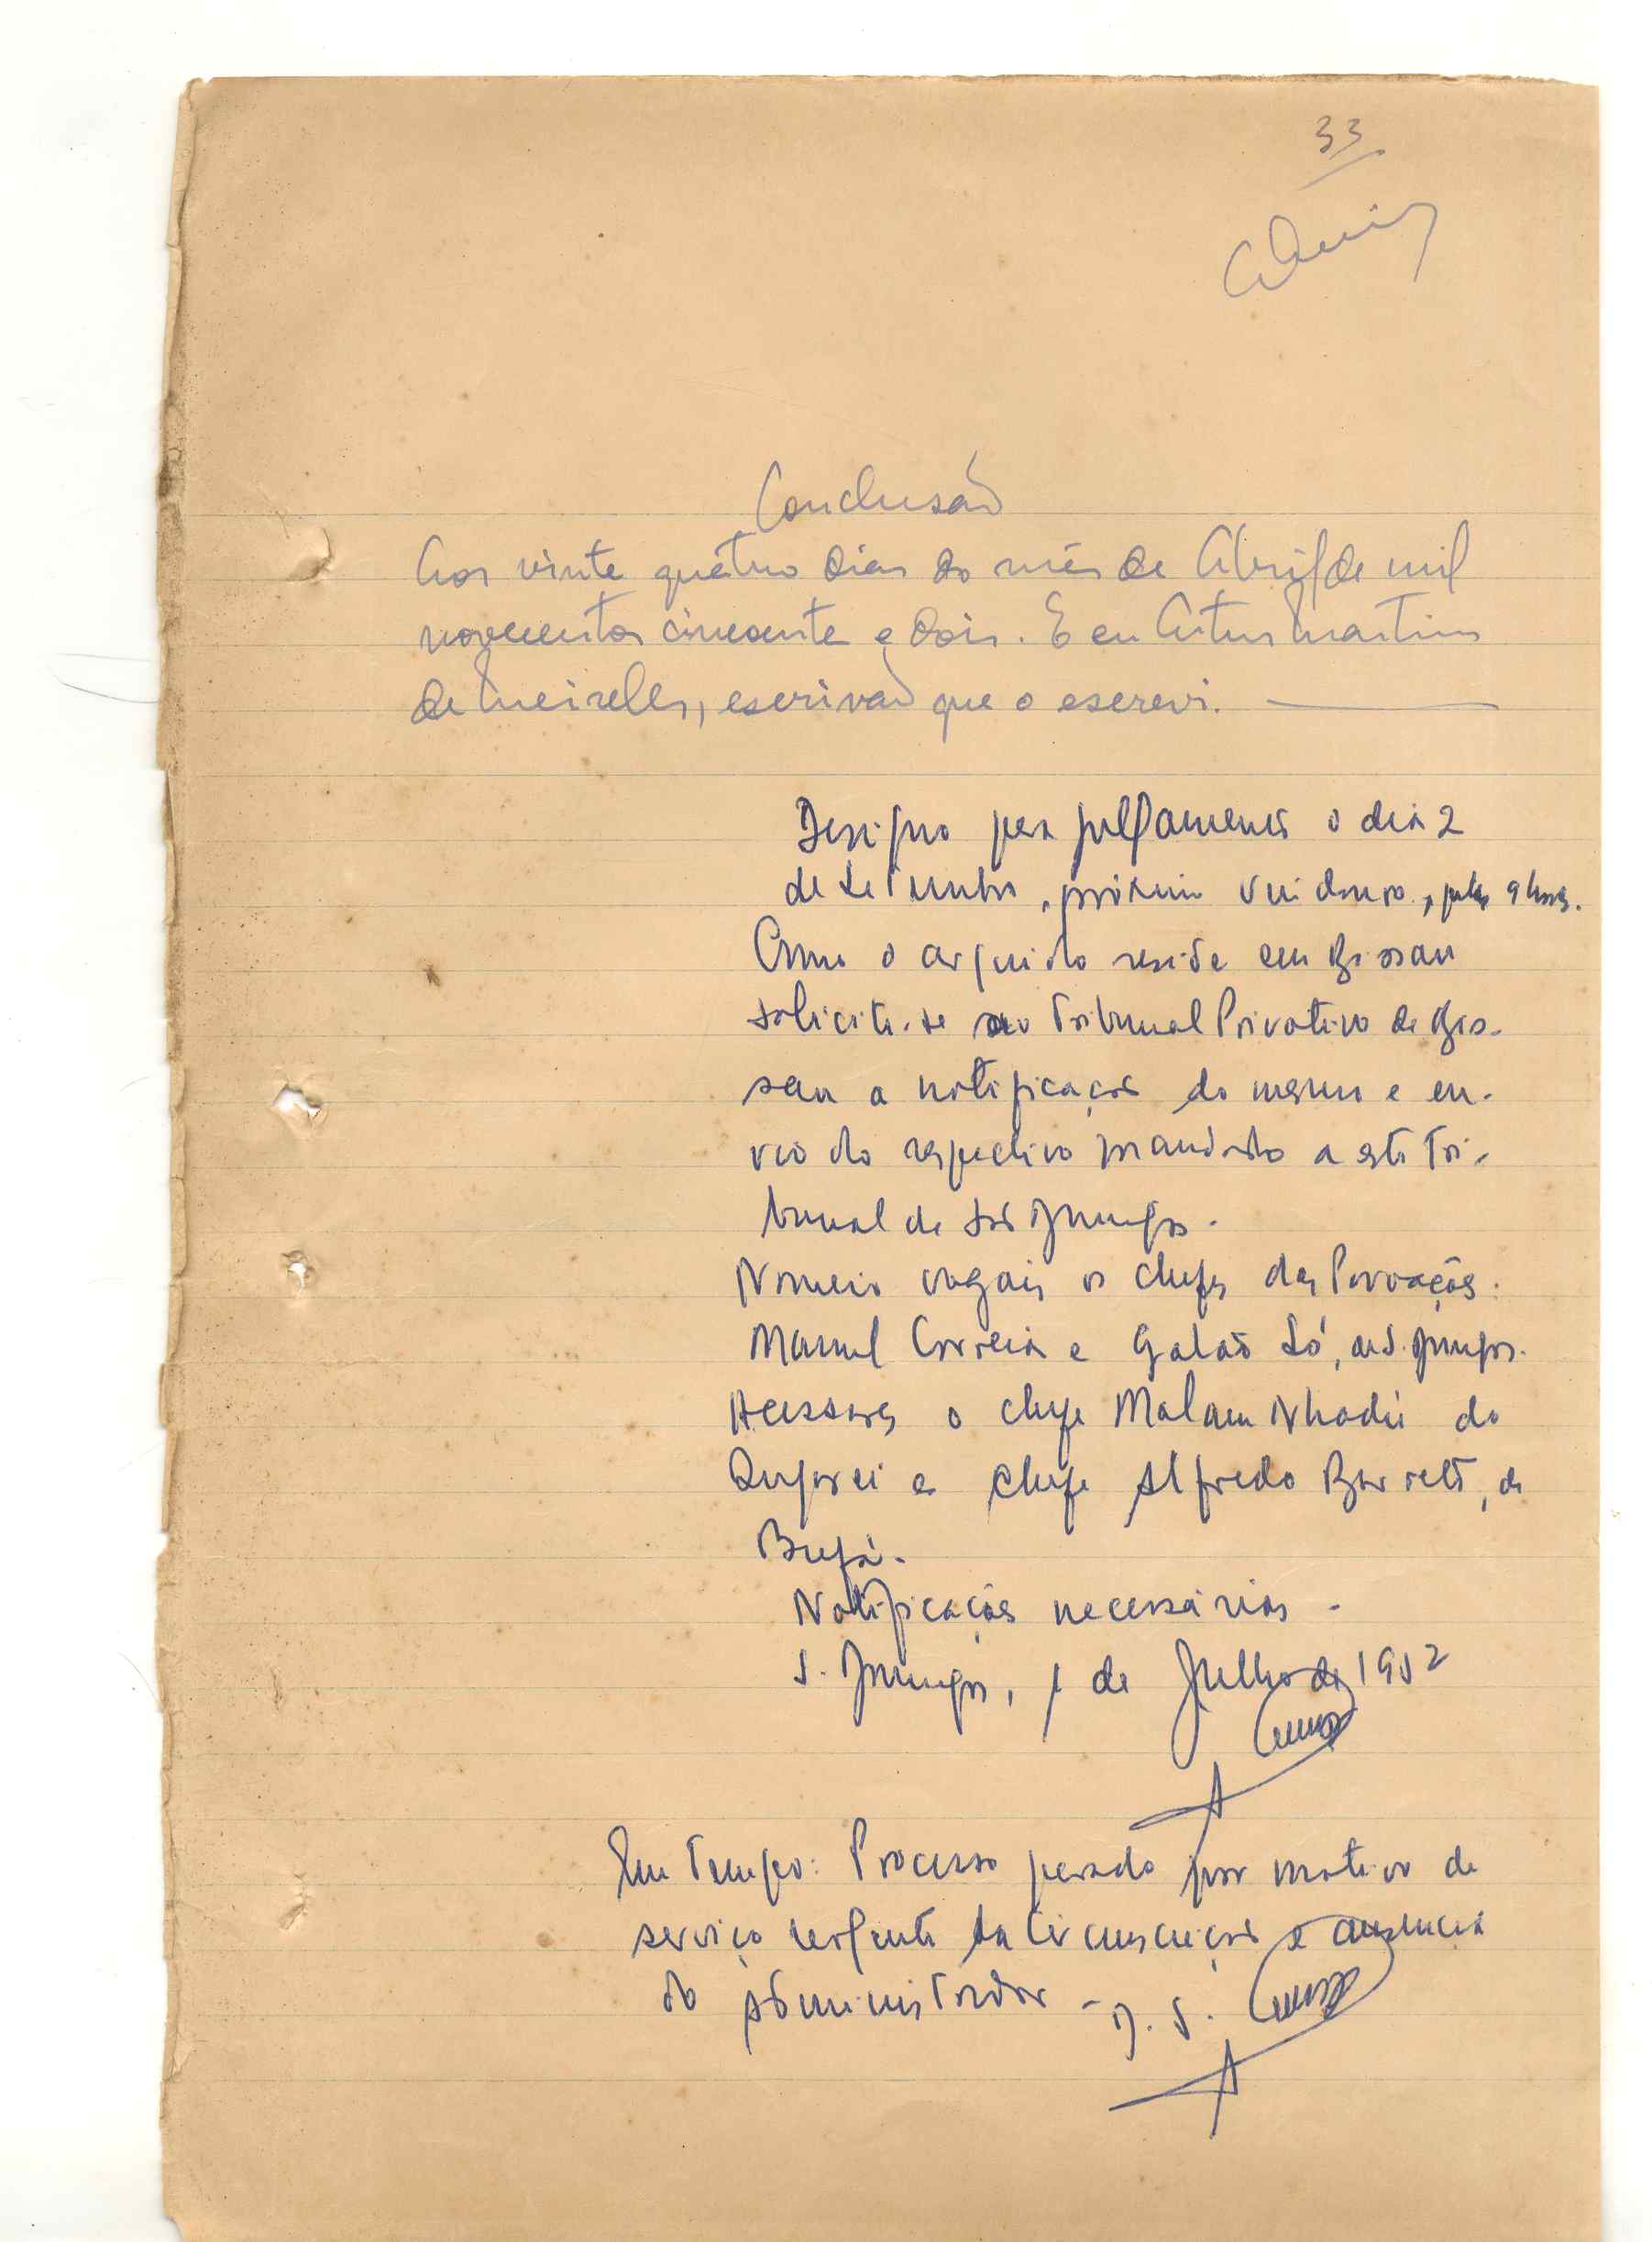 33
Conclusão
Aos vinte quatro dias do mês de Abril de mil
novecentos cincoenta e dois. E eu Artur Martins
de Meirelles, escrivão que o escrevi.
Designo para julgamento o dia 2
de Setembro, próximo vindouro, pelas 9 horas.
Como o arguido reside em Bissau
solicite-se ao Tribunal Privativo de Bis-
sau a notificação do mesmo e en-
vio do respectivo mandado a este Tri-
bunal de São Domingos.
Nomeio vogais os chefes das Povoações
Manuel Correia e Galão Só, de S. Domingos.
Acessores o chefe Malam Nhadi do
e chefe Alfredo Barreto, de
Notificações necessárias.
S. Domingos, 1 de Julho de 1952
Em tempo: Processo parado por motivo de
serviço urgente da Circunscrição e ausencia
do Administrador - D. S.